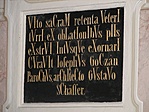 VIto saCraM retenta Veter!
tVrrI eX obLatIonIbVs pIIs
eXstrVI IntVsqVe eXornarI
CVraVIt IosephVs GoCzan
ParoChVs, arChIteCto gVstaVo
SChäffer.